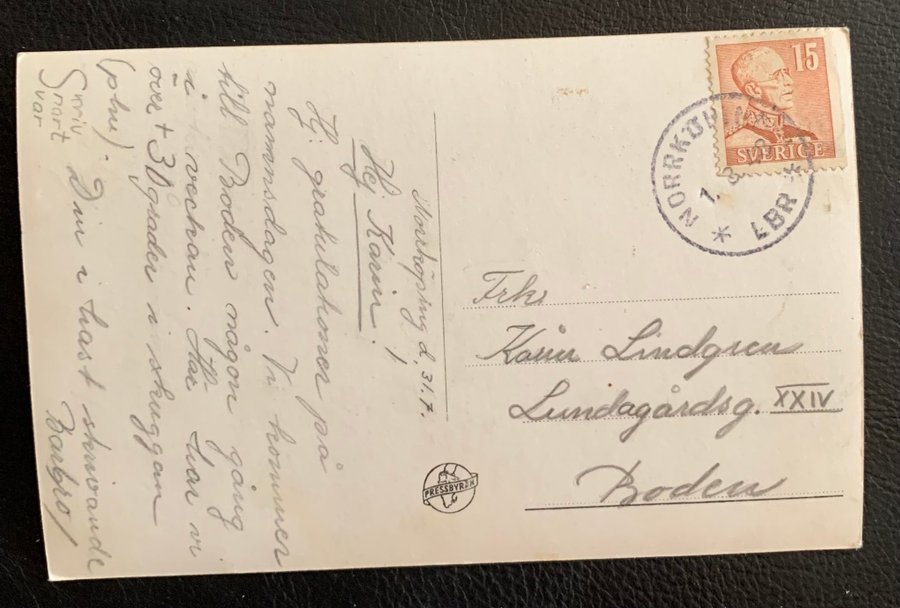 Norrköping d. 31.7.
Hej Karin!
Hj gratulationer på
namnsdagen. Vi kommer
till Boden någon gång
i veckan. Här har vi
över + 30 grader i skuggan
(phu) Din i hast skrivande
Barbro/
Skriv
Snart
Var
15
SVERIGE
NORRKÖPING
1. 3
LBR
Frk
Karin Lindgren
Lundagårdsg. XXIV
Boden
PRESSBYRÅN